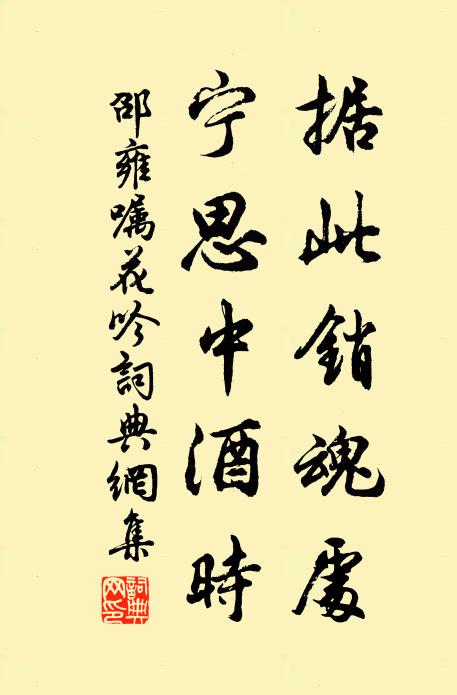 据此銷魂處
宁思中酒時
邵雍嘱花吟詞典網集
詞典網印